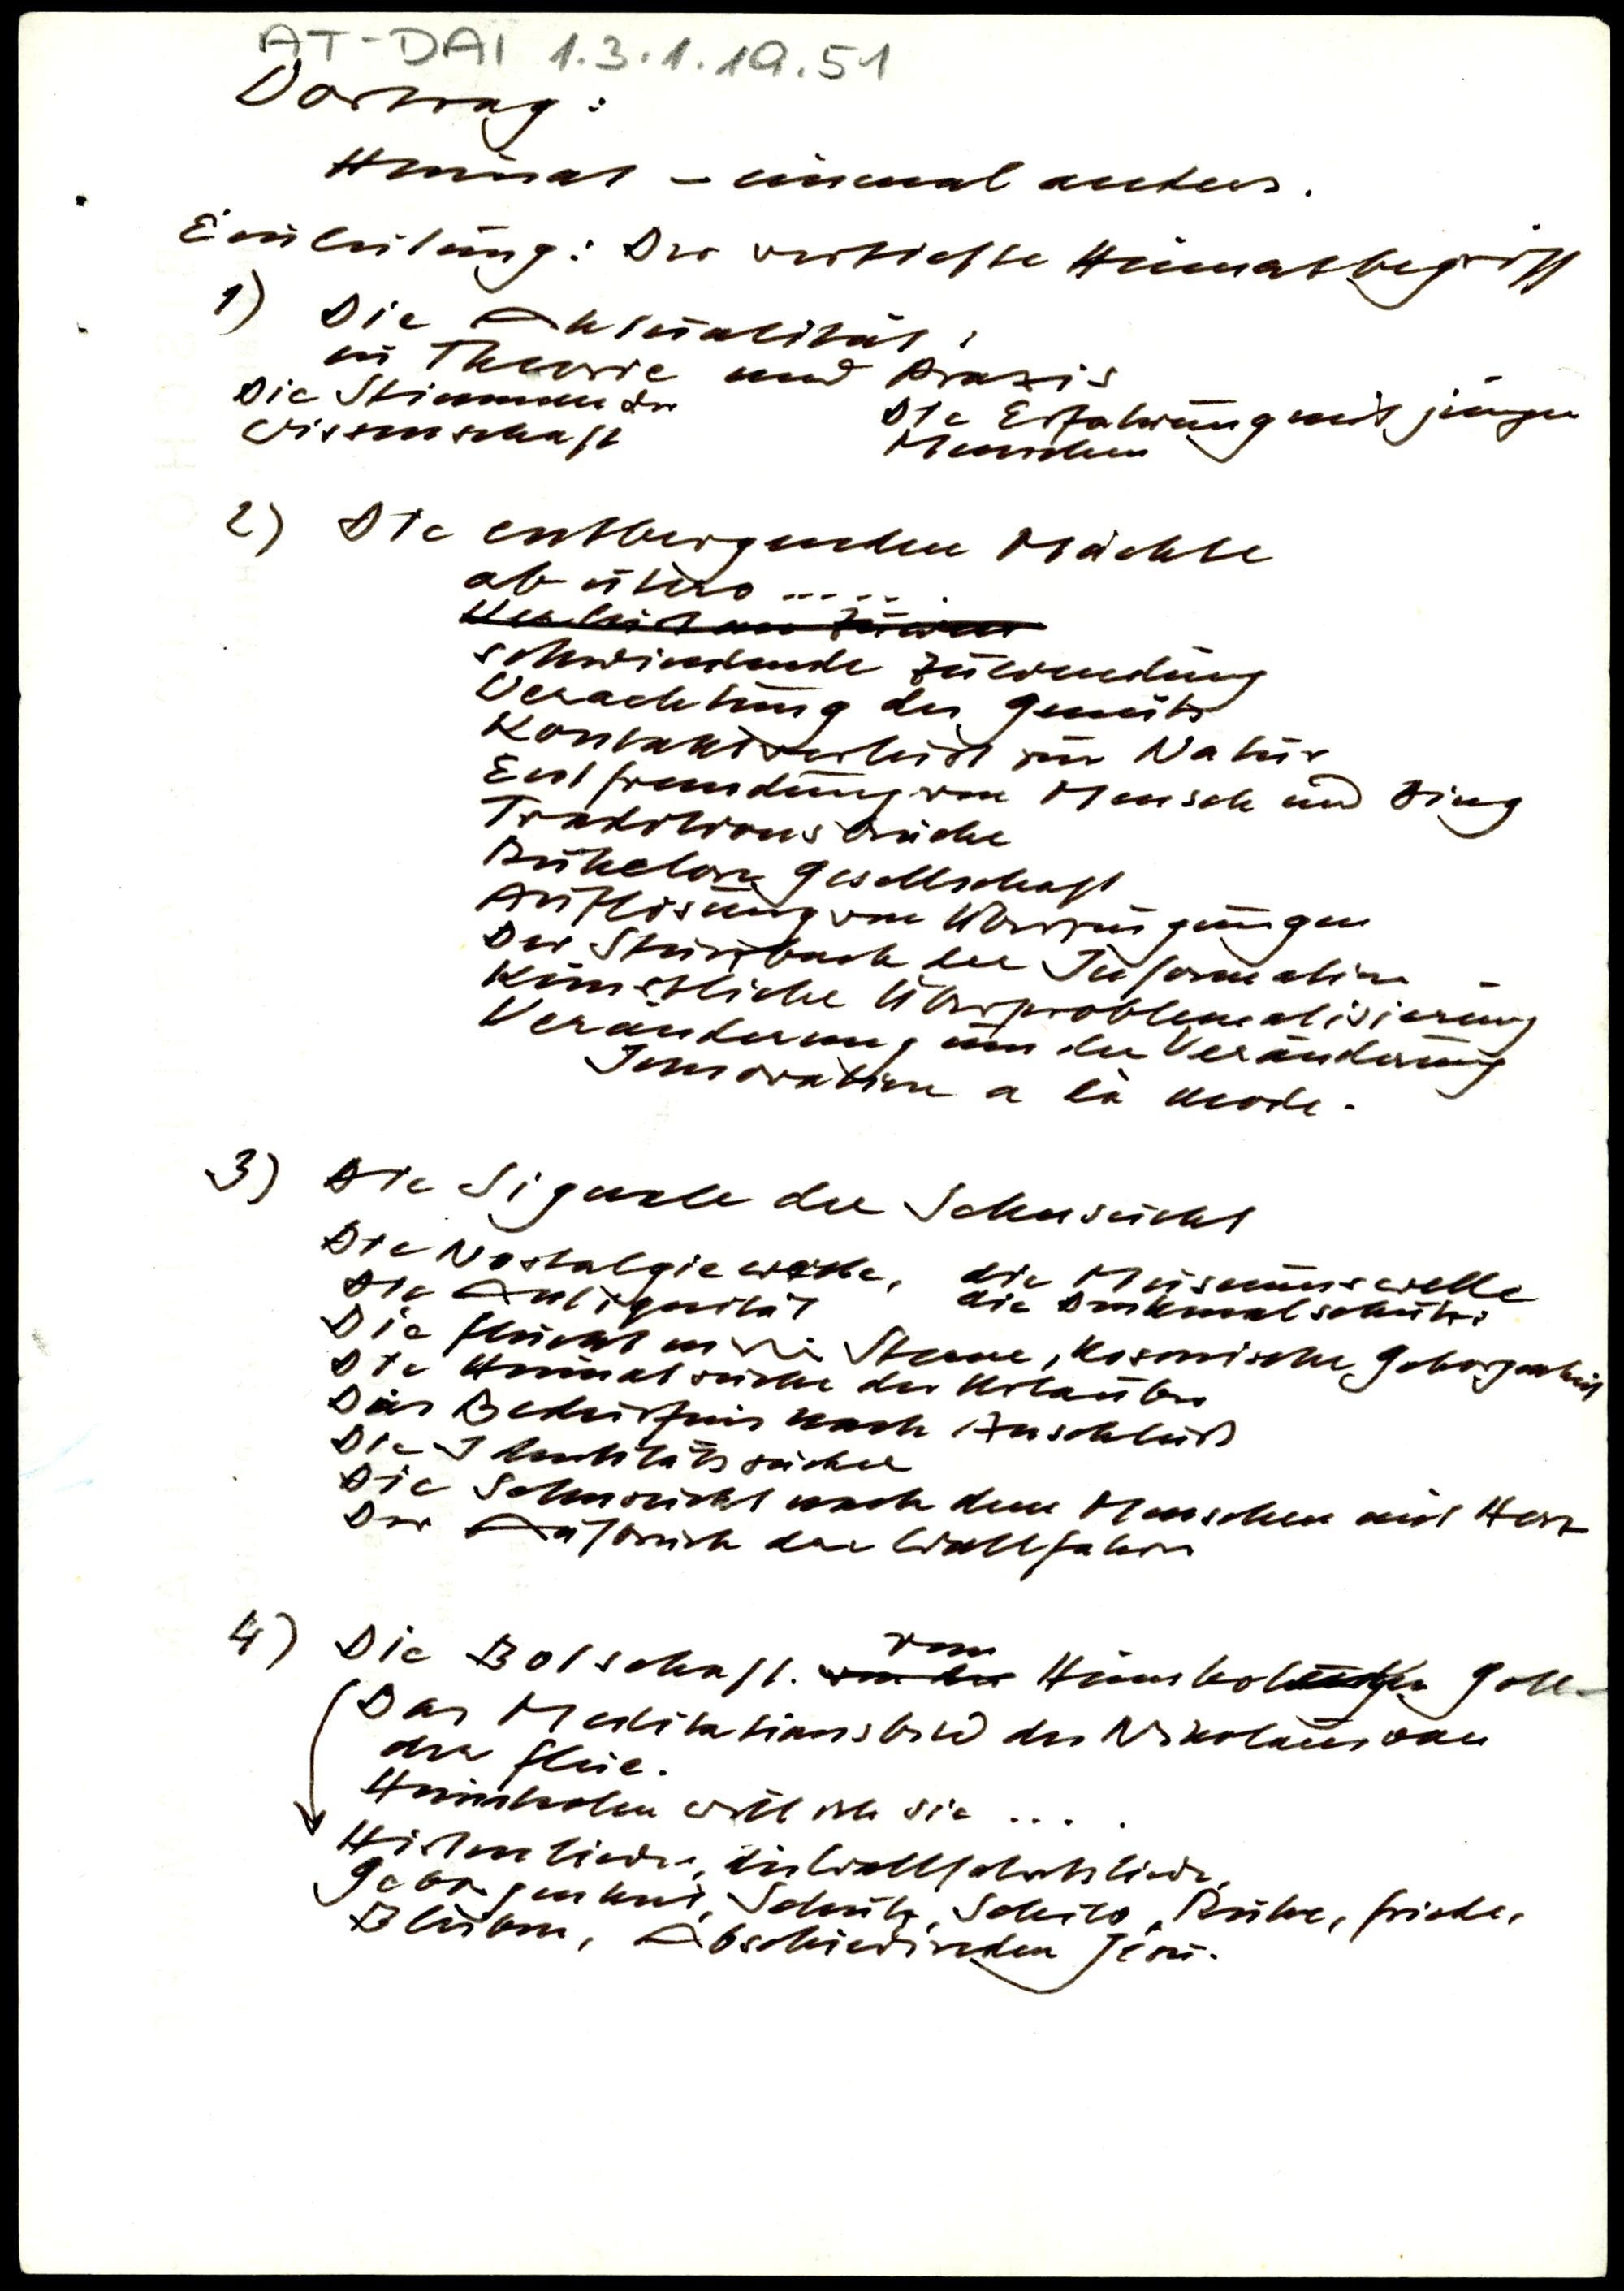 AT-DAI 1.3.1.19.51
Vortrag:
Heimat – einmal anders.
Einleitung: Der vertiefte Heimatbegriff
1) Die Aktualität:
in Theorie und Praxis
Die Stimmen der Die Erfahrung mit jungen
Wissenschaft Menschen
2) Die entbergenden Mächte
ab utero .....
schwindende Zuwendung
Verachtung des Gemüts
Kontaktverlust zur Natur
Entfremdung von Mensch und Ding
Traditionsbrüche
Ruhelose Gesellschaft
Auflösung von Überzeugungen
Der Sturzbach der Information
Künstliche Überproblematisierung
Veränderung um der Veränderung
Innovation a la mode.
3) Die Signale der Sehnsucht
Die Nostalgiewelle, die Museumswelle
Die Antiquität die Denkmalschutz
Die Flucht in die Sterne, kosmische Geborgenheit
Die Heimatsuche der Urlauber
Das Bedürfnis nach Anschluß
Die Identitätssuche
Die Sehnsucht nach dem Menschen mit Herz
Der Aufbruch der Wallfahrt
4) Die Botschaft. vom Heimholenden Gott
Das Meditationsbild des Nikolaus von
der Flüe.
Heimholen will ich sie ....
Hirtenlieder, die Wallfahrtslieder,
Geborgenheit, Schutz, Schild, Ruhe, Friede,
Bleiben, Abschiedsreden Jesu.